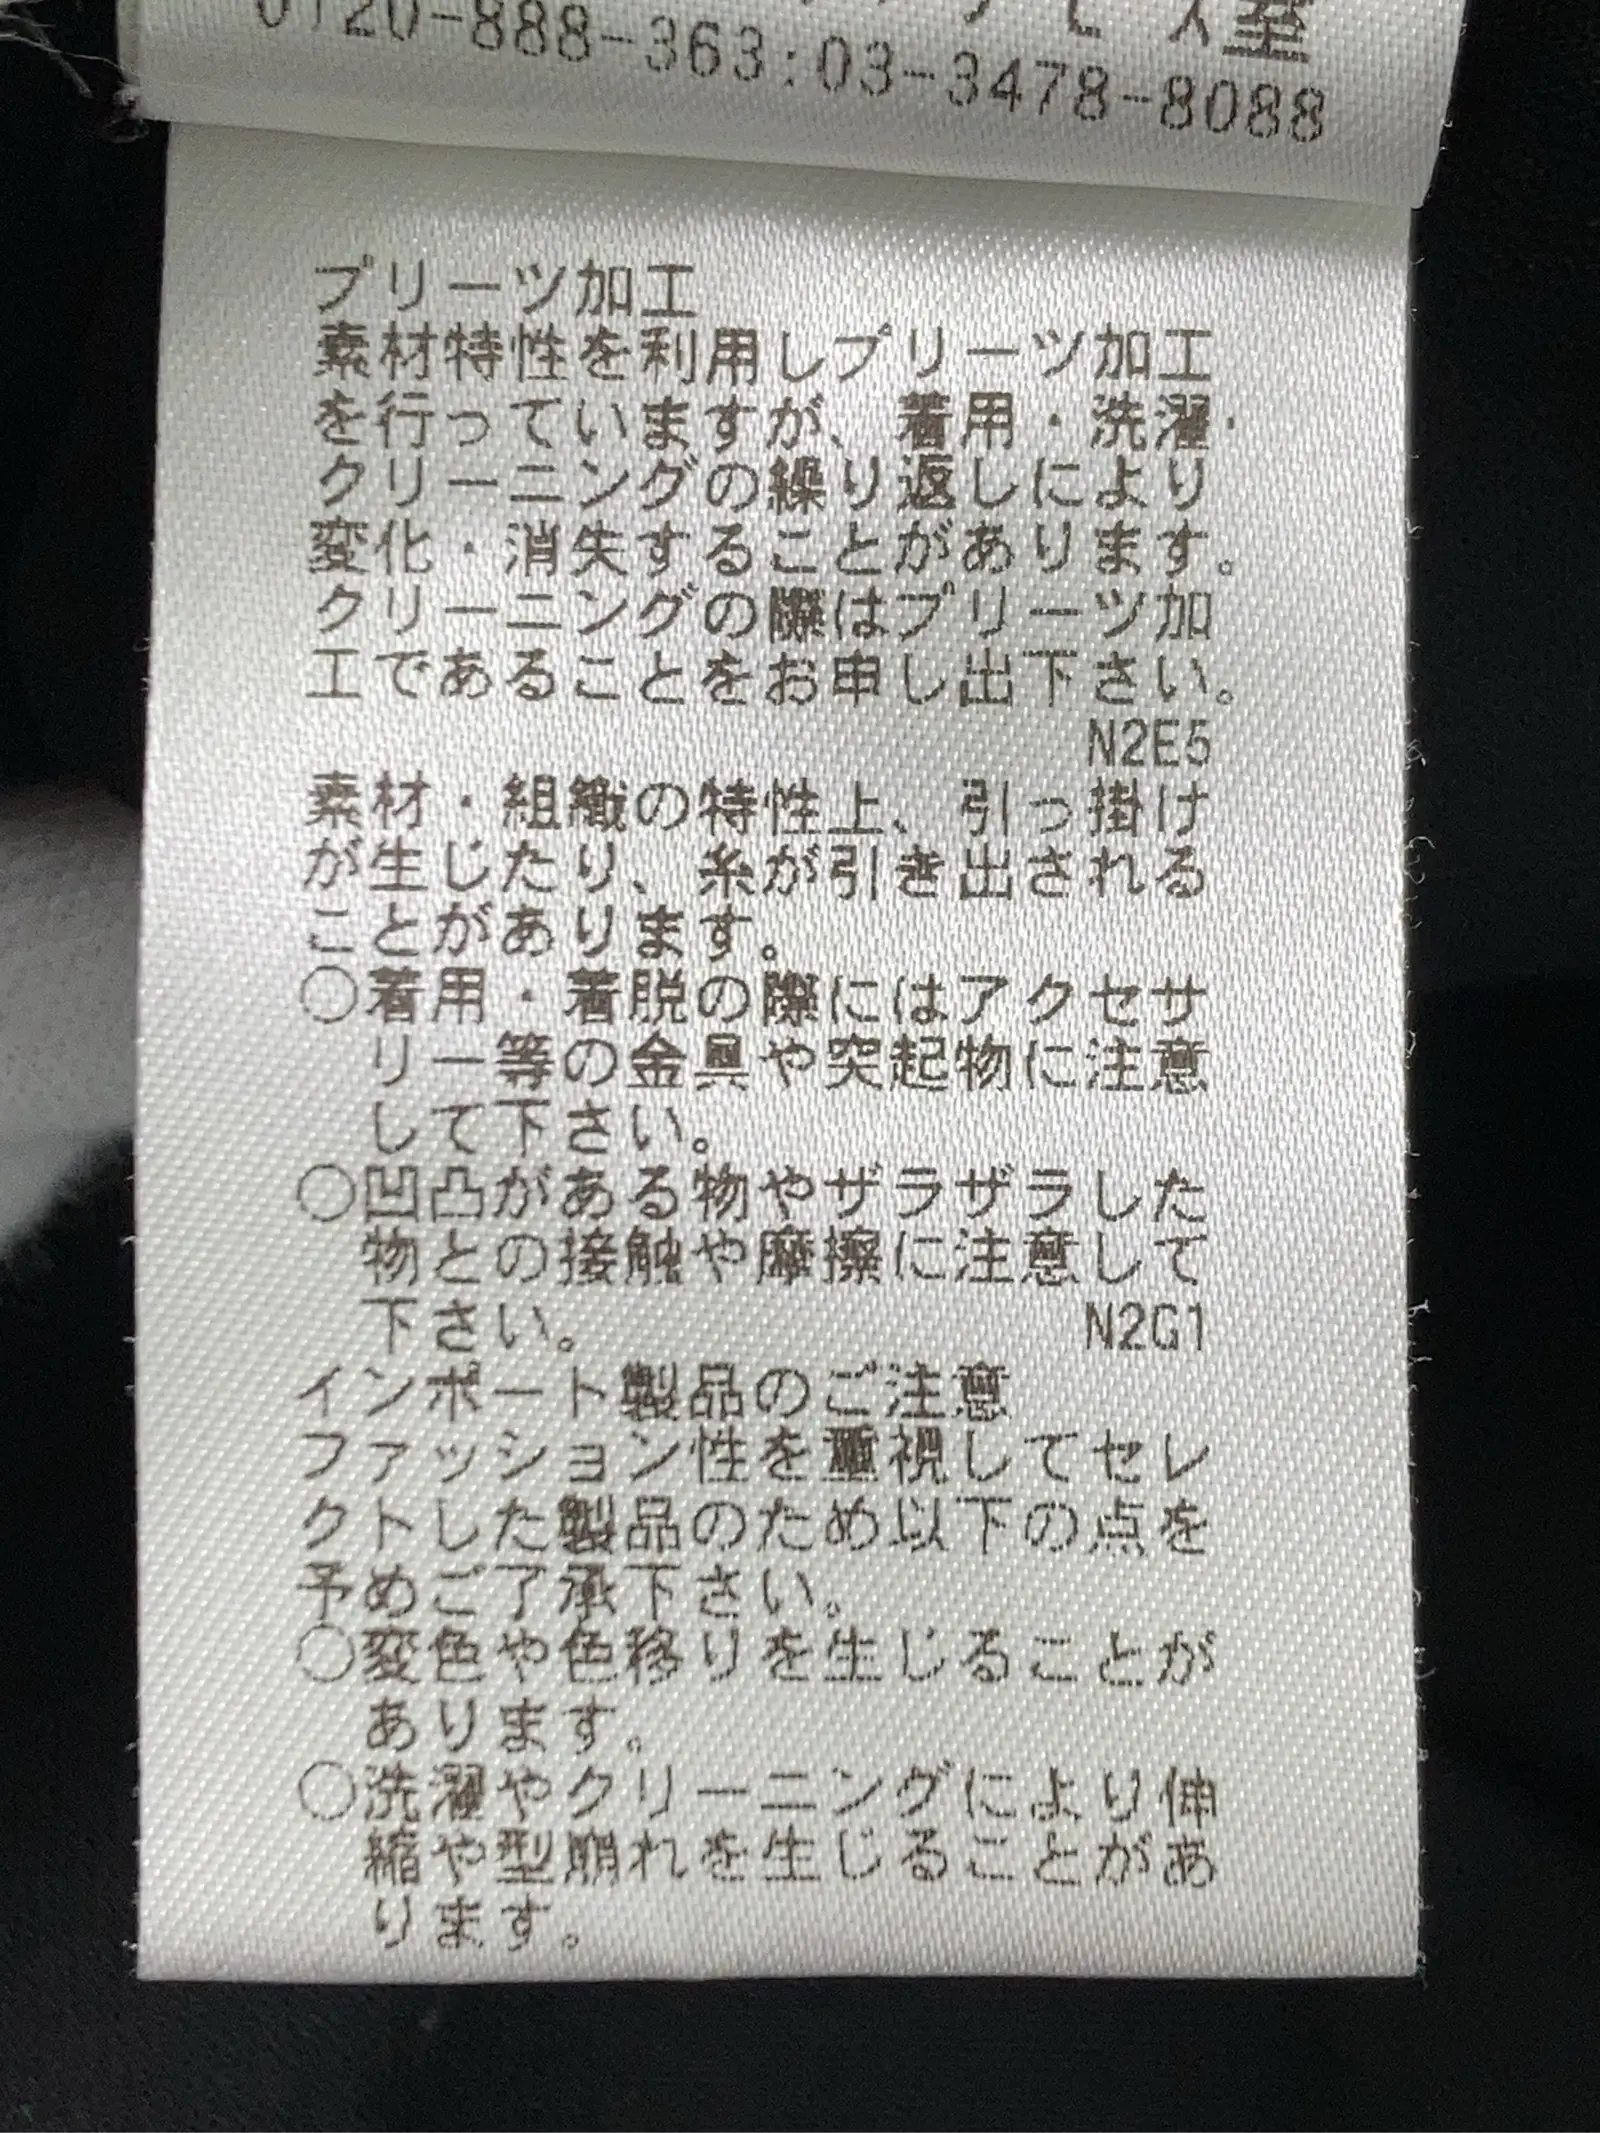 ービス室
0120-888-363:03-3478-8088
プリーツ加工
素材特性を利用しプリーツ加工
を行っていますが、着用・洗濯・
クリーニングの繰り返しにより
変化・消失することがあります。
クリーニングの際はプリーツ加
工であることをお申し出下さい。
N2E5
素材・組織の特性上、引っ掛け
が生じたり、糸が引き出される
ことがあります。
○着用・着脱の際にはアクセサ
リー等の金具や突起物に注意
して下さい。
○凹凸がある物やザラザラした
物との接触や摩擦に注意して
下さい。 N2G1
インポート製品のご注意
ファッション性を重視してセレ
クトした製品のため以下の点を
予めご了承下さい。
○変色や色移りを生じることが
あります。
○洗濯やクリーニングにより伸
縮や型崩れを生じることがあ
ります。